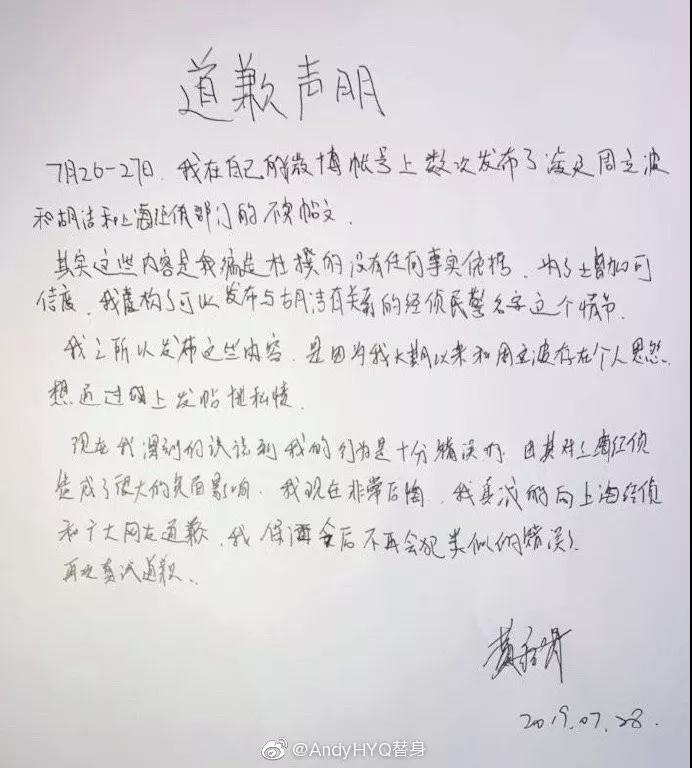 道歉声明
7月26-27日,我在自己的微博帐号上数次发布了涉及周立波
和胡洁和上海经侦部门的不实帖文.
其实这些内容是我编造杜撰的没有任何事实依据,为了增加可
信度,我虚构了可以发布与胡洁有关系的经侦民警名字这个情节.
我之所以发布这些内容,是因为我长期以来和周立波存在个人恩怨.
想通过网上发帖泄私愤.
现在我深刻的认识到我的行为是十分错误的,因其对上海经侦
造成了很大的负面影响.我现在非常后悔,我真诚的向上海经侦
和广大网友道歉,我保证今后不再会犯类似的错误.
再次真诚道歉.
2019.07.28.
@AndyHYQ替身